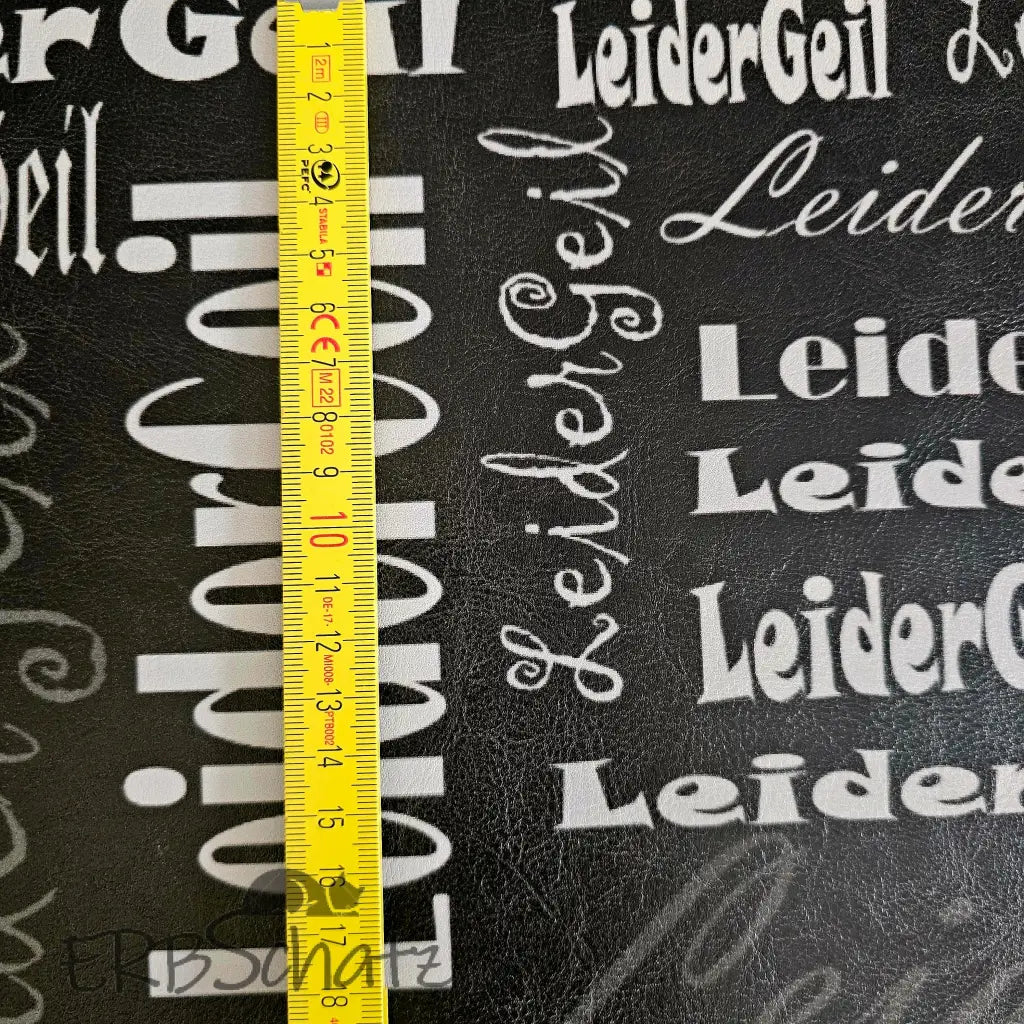 er Geil
LeiderGeil
Geil
LeiderGeil
LeiderGeil
Leider
Leide
Leide
LeiderG
Leider
1
2m
2
3
PEFC
4
STABILA
5
6
CE
7
M 22
8
0102
9
10
11
DE-17-
12
MI008-
13
PTB002
14
15
16
17
18
ERBSchatz